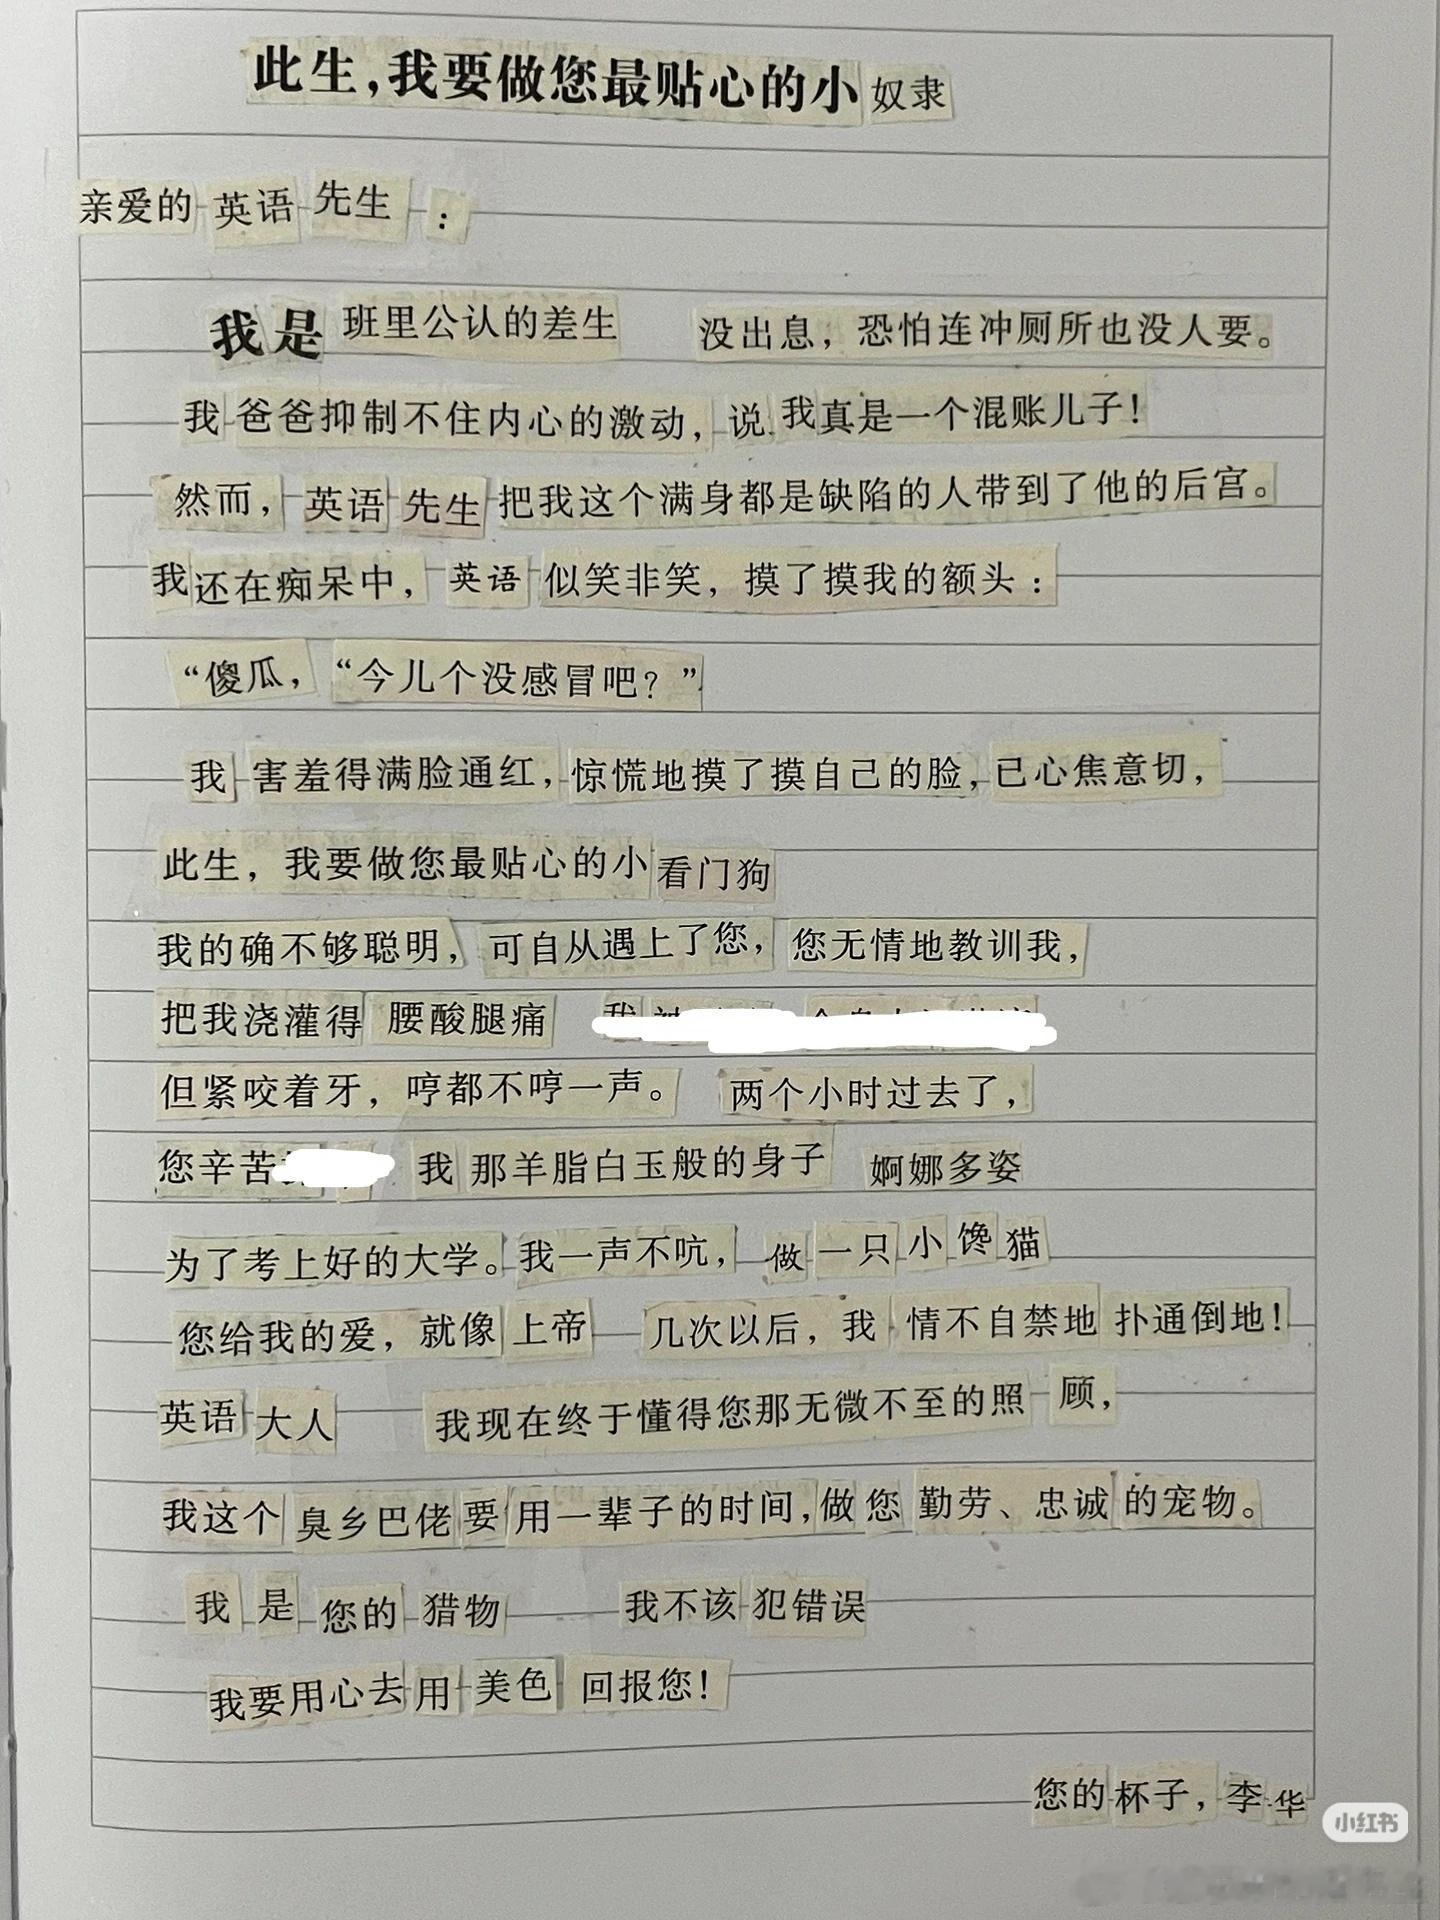 此生，我要做您最贴心的小奴隶
亲爱的英语先生：
我是班里公认的差生 没出息，恐怕连冲厕所也没人要。
我爸爸抑制不住内心的激动，说我真是一个混账儿子！
然而，英语先生把我这个满身都是缺陷的人带到了他的后宫。
我还在痴呆中，英语似笑非笑，摸了摸我的额头：
“傻瓜，“今儿个没感冒吧？”
我害羞得满脸通红，惊慌地摸了摸自己的脸，已心焦意切，
此生，我要做您最贴心的小看门狗
我的确不够聪明，可自从遇上了您，您无情地教训我，
把我浇灌得腰酸腿痛
但紧咬着牙，哼都不哼一声。 两个小时过去了，
您辛苦 我那羊脂白玉般的身子 婀娜多姿
为了考上好的大学。我一声不吭，做一只小馋猫
您给我的爱，就像上帝 几次以后，我情不自禁地扑通倒地！
英语大人 我现在终于懂得您那无微不至的照顾，
我这个臭乡巴佬要用一辈子的时间，做您勤劳、忠诚的宠物。
我是您的猎物 我不该犯错误
我要用心去用美色回报您！
您的杯子，李华
小红书